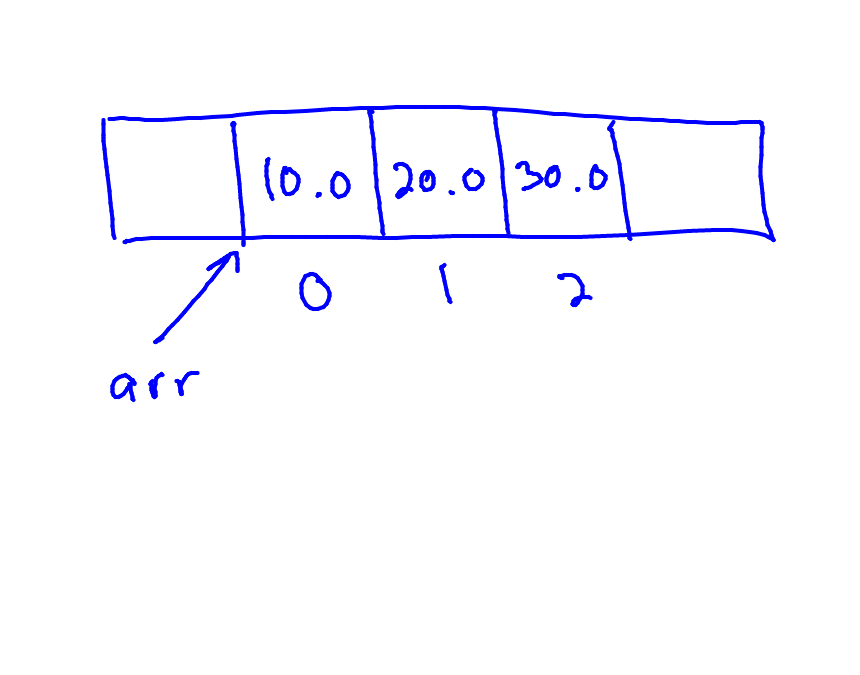 10.0 20.0 30.0
0 1 2
arr